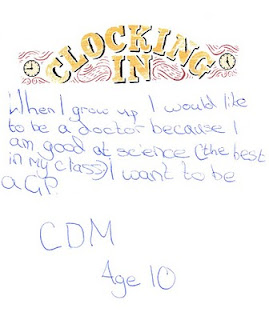 CLOCKING
IN
When I grow up I would like
to be a doctor because I
am good at science (the best
in my class) I want to be
a GP.
CDM
Age 10